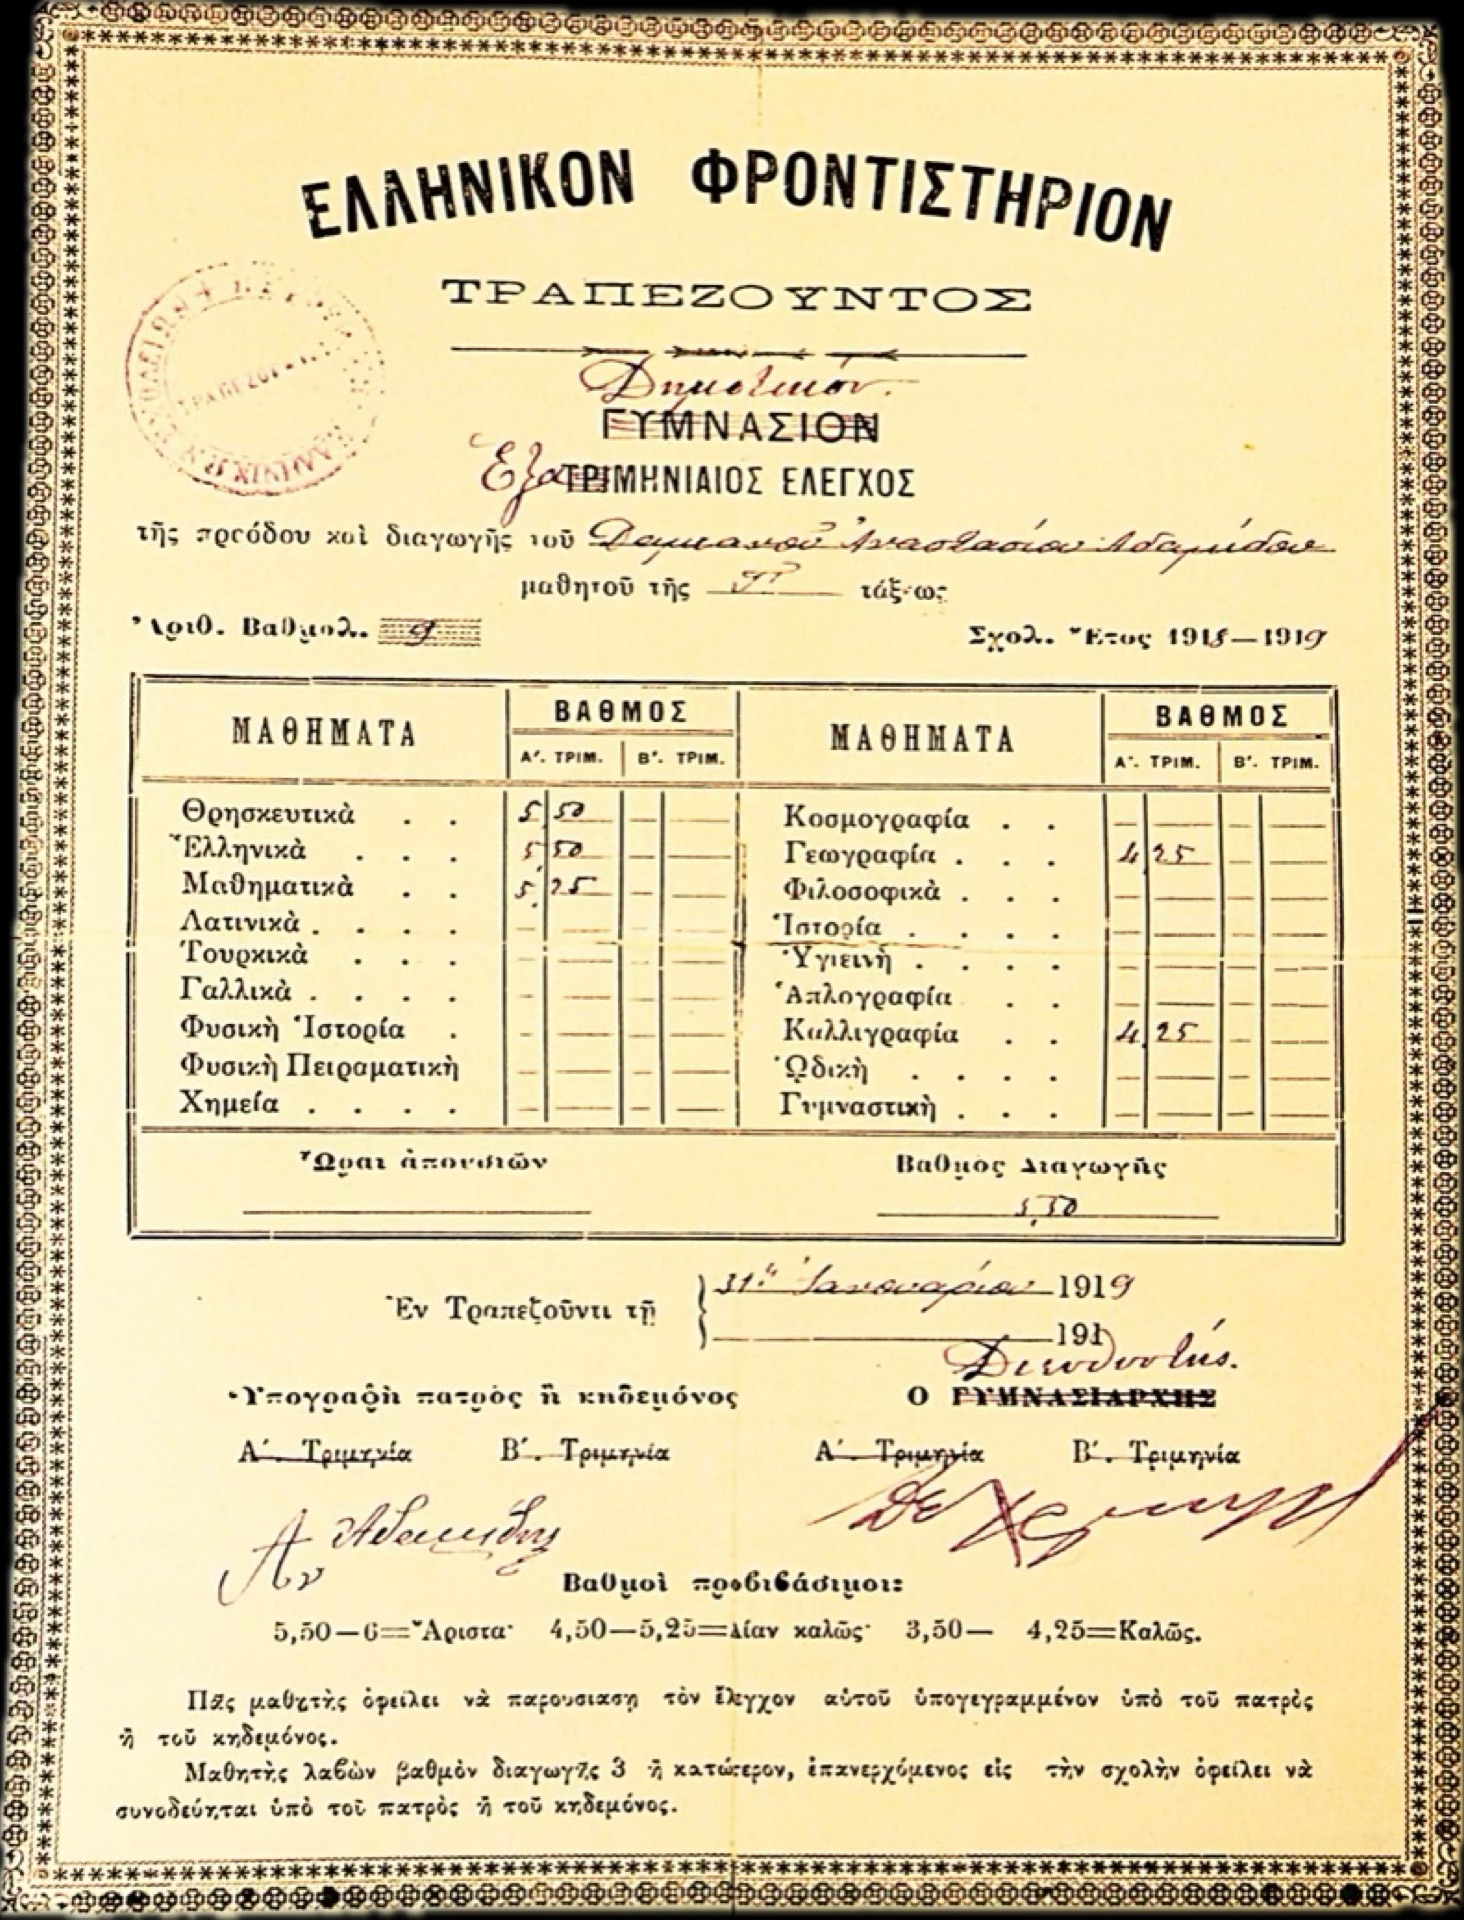 ΕΛΛΗΝΙΚΟΝ ΦΡΟΝΤΙΣΤΗΡΙΟΝ
ΤΡΑΠΕΖΟΥΝΤΟΣ
Δημοτικόν.
ΓΥΜΝΑΣΙΟΝ
Ἑξα ΤΡΙΜΗΝΙΑΙΟΣ ΕΛΕΓΧΟΣ
τῆς προόδου καὶ διαγωγῆς τοῦ Δαμιανοῦ Ἀναστασίου Ἀδαμίδου
μαθητοῦ τῆς τάξεως
Ἀριθ. Βαθμολ. 9 Σχολ. Ἔτος 1918—1919
ΜΑΘΗΜΑΤΑ ΒΑΘΜΟΣ ΜΑΘΗΜΑΤΑ ΒΑΘΜΟΣ
Α΄. ΤΡΙΜ. Β΄. ΤΡΙΜ. Α΄. ΤΡΙΜ. Β΄. ΤΡΙΜ.
Θρησκευτικὰ . . 5,50 — — Κοσμογραφία . . — — — —
Ἑλληνικὰ . . . 5,50 — — Γεωγραφία . . . 4,25 — —
Μαθηματικὰ . . 5,25 — — Φιλοσοφικὰ . . . — — — —
Λατινικὰ . . . . — — — — Ἱστορία . . . . — — — —
Τουρκικὰ . . . — — — — Ὑγιεινὴ . . . . — — — —
Γαλλικὰ . . . . — — — — Ἁπλογραφία . . — — — —
Φυσικὴ Ἱστορία . — — — — Καλλιγραφία . . 4,25 — —
Φυσικὴ Πειραματικὴ — — — — ᾨδικὴ . . . . — — — —
Χημεία . . . . — — — — Γυμναστικὴ . . . — — — —
Ὧραι ἀπουσιῶν Βαθμὸς Διαγωγῆς
5,50
Ἐν Τραπεζοῦντι τῇ 31ῃ Ἰανουαρίου 1919
191
Διευθυντής.
Ὑπογραφὴ πατρὸς ἢ κηδεμόνος Ο ΓΥΜΝΑΣΙΑΡΧΗΣ
Α΄. Τριμηνία Β΄. Τριμηνία Α΄. Τριμηνία Β΄. Τριμηνία
Αν Ἀδαμίδης
Βαθμοὶ προβιβάσιμοι:
5,50—6=Ἄριστα· 4,50—5,25=Λίαν καλῶς· 3,50— 4,25=Καλῶς.
Πᾶς μαθητὴς ὀφείλει νὰ παρουσιάσῃ τὸν ἔλεγχον αὑτοῦ ὑπογεγραμμένον ὑπὸ τοῦ πατρὸς
ἢ τοῦ κηδεμόνος.
Μαθητὴς λαβὼν βαθμὸν διαγωγῆς 3 ἢ κατώτερον, ἐπανερχόμενος εἰς τὴν σχολὴν ὀφείλει νὰ
συνοδεύηται ὑπὸ τοῦ πατρὸς ἢ τοῦ κηδεμόνος.